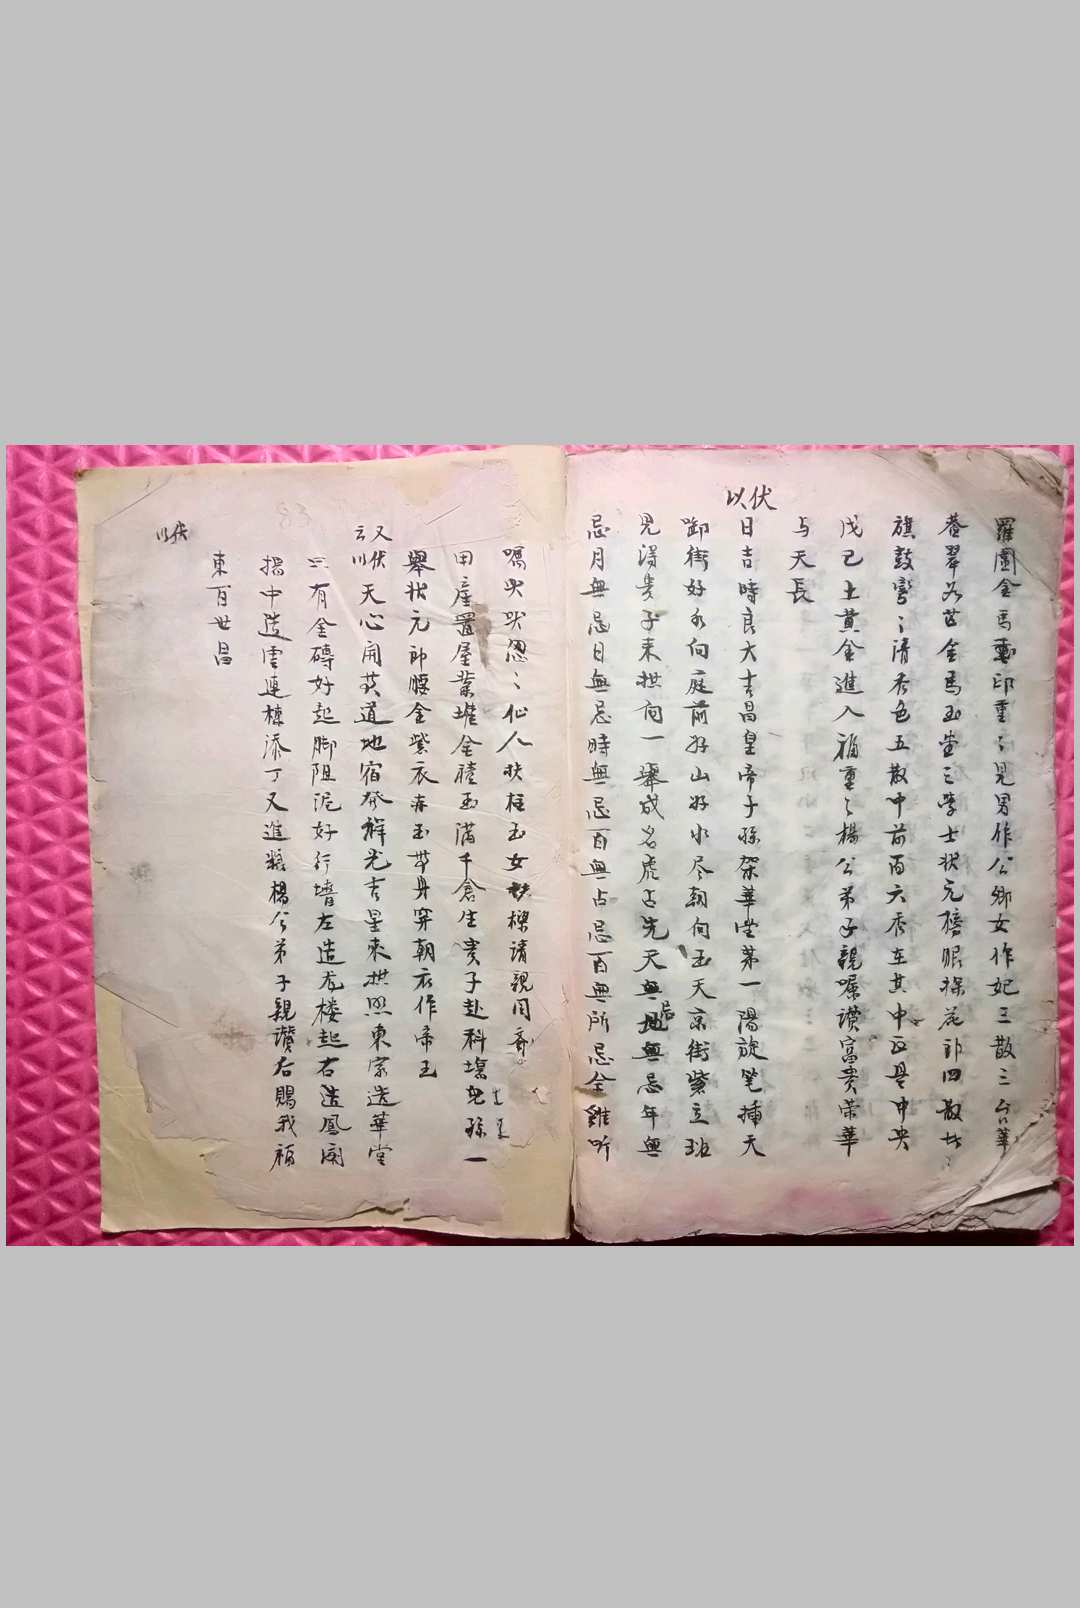 羅圍金馬印重〻見男作公卿女作妃三散三台華
蓋翠 金馬玉堂三學士狀元榜眼探花郎四散
旗鼓 〻清秀色五散中前百六秀在其中正是中央
戊己土黃金進入福重〻楊公弟子親嘱讚富貴榮華
与天長
以伏
日吉時良大吉昌皇帝子孫架華堂第一陽旋筆插天
卸街好水向庭前好山好水尽朝向玉天京街紫立班
見湯貴子来拱向一舉成名虎占先天無忌地無忌年無
忌月無忌日無忌時無忌百無占忌百無所忌金雞听
嘱 〻仙人扶柱玉女扶樑請親同
田產置屋業堆金積玉滿千倉生貴子赴科場兒孫一
舉狀元郎腰金紫衣赤玉帶身穿朝衣作帝王
又云
以伏天心開英道地宿發祥光吉星來拱照東家造華堂
三有金磚好起脚阻泥好行墻左造龙楼起右造鳳閣
揭中造雲連棟添丁又進粮楊公弟子親讚后賜我福
東百世昌
以伏